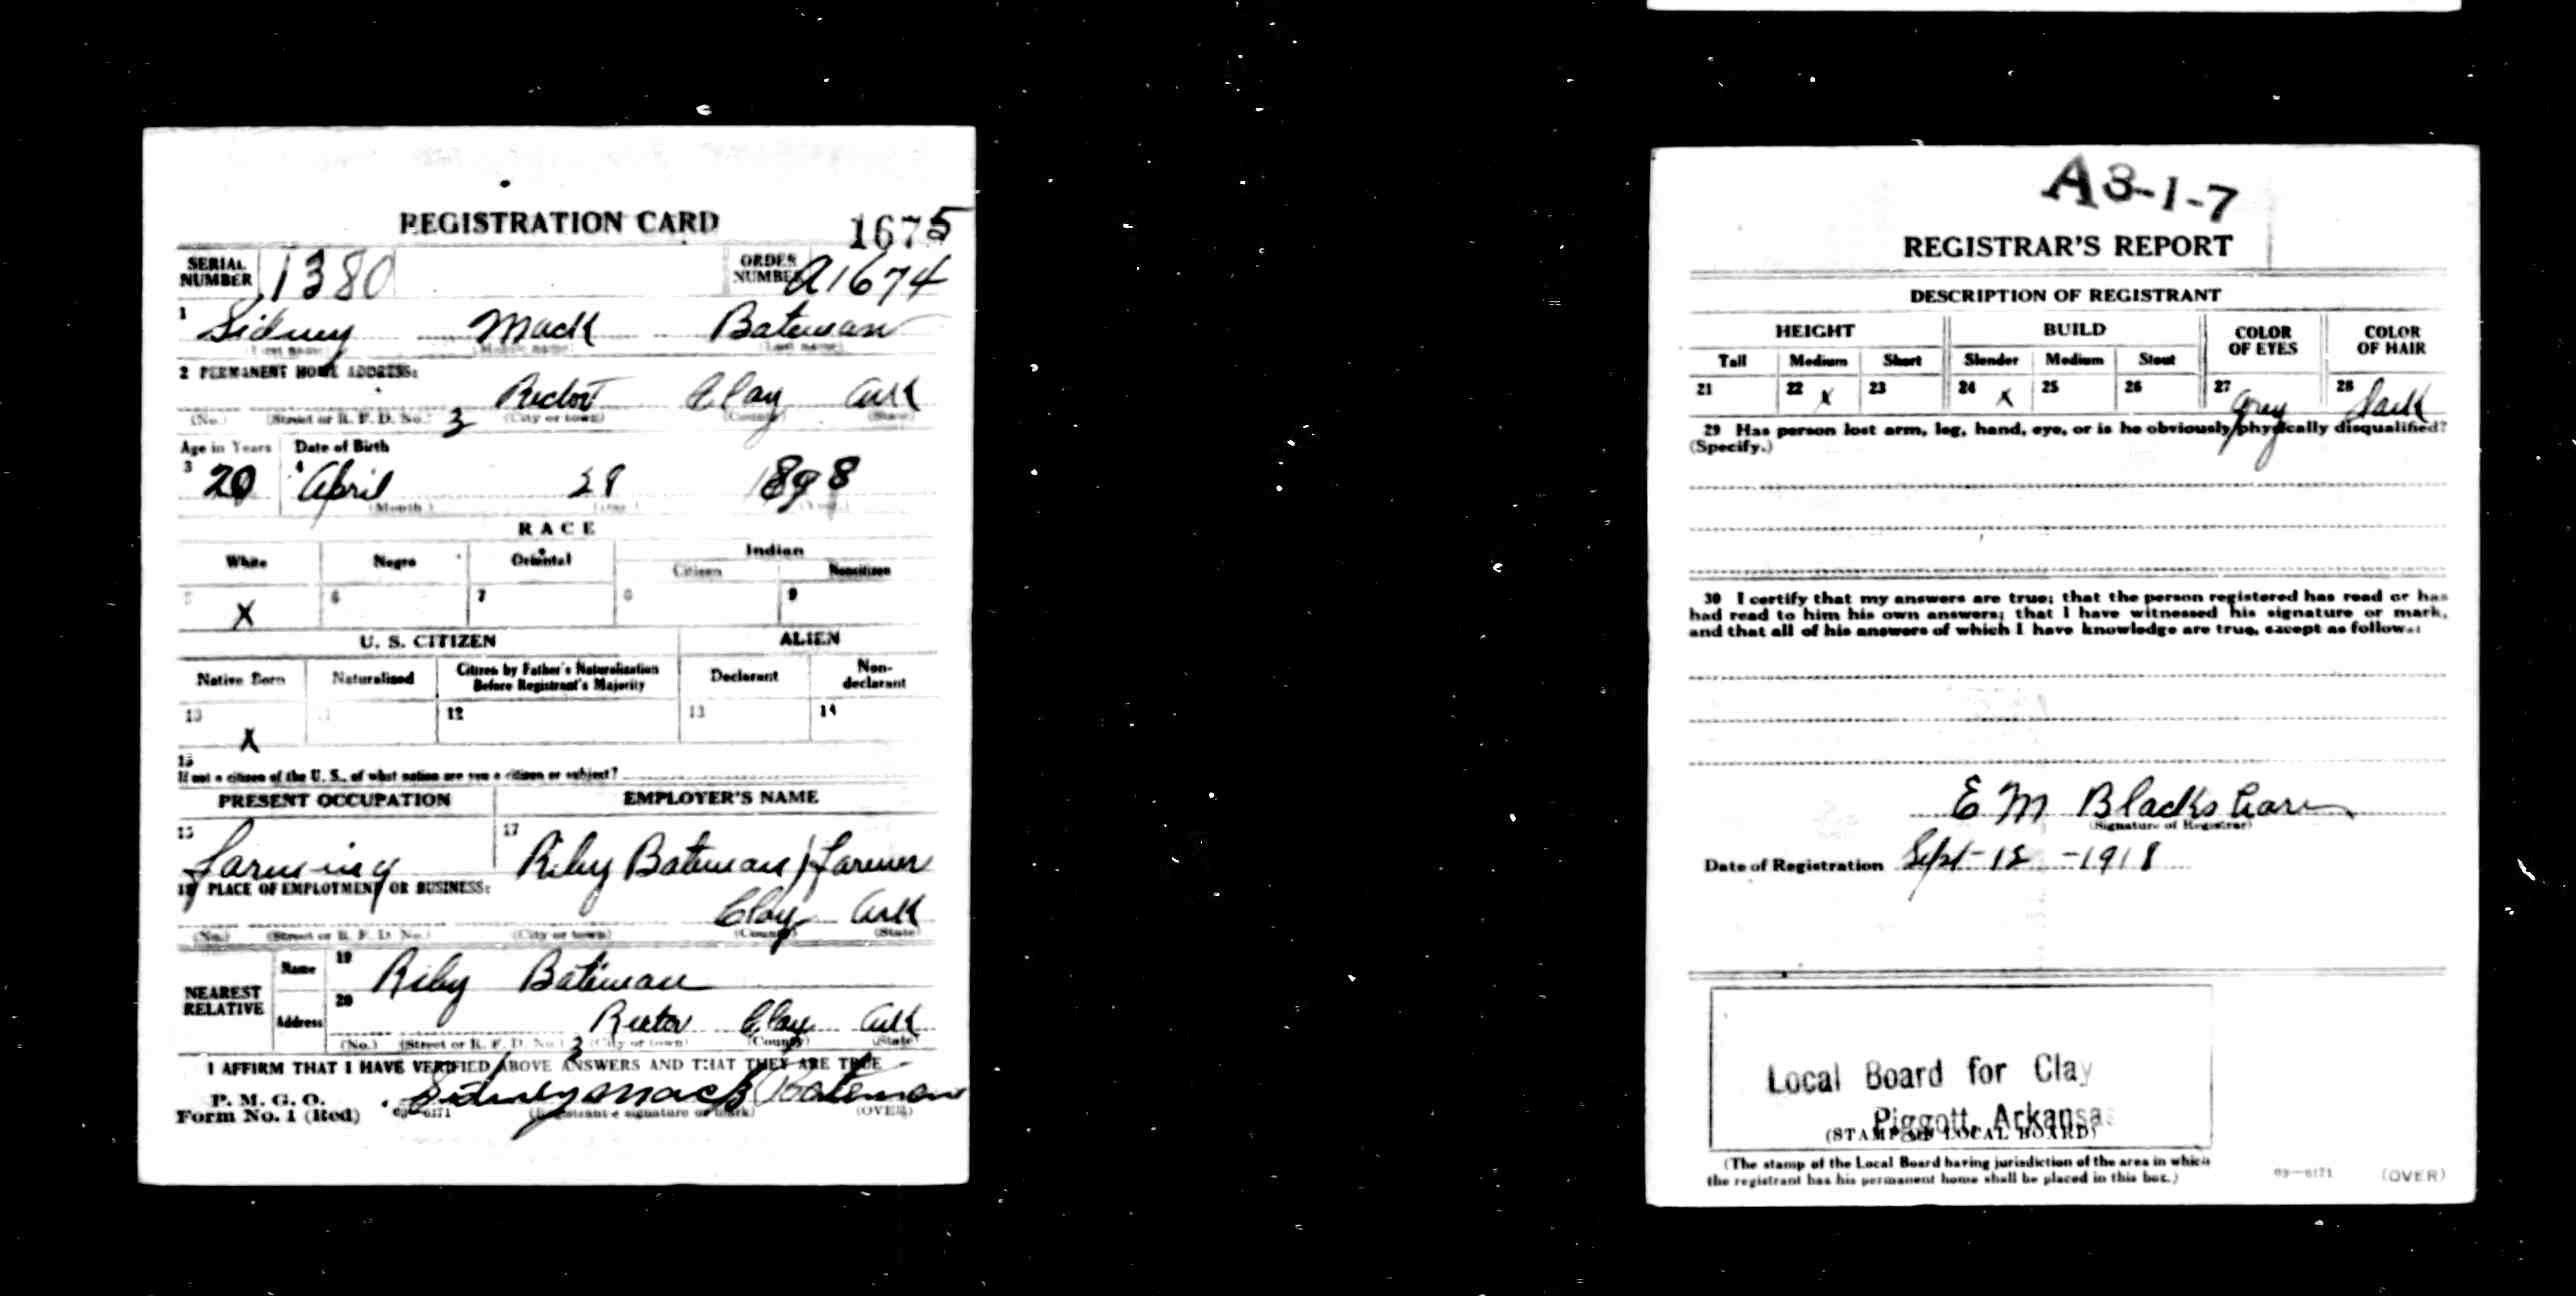 REGISTRATION CARD 1675
SERIAL NUMBER 1380 ORDER NUMBER A1674
1 Sidney Mack Bateman
(First name) (Middle name) (Last name)
2 PERMANENT HOME ADDRESS:
3 Rector Clay Ark
(No.) (Street or R. F. D. No.) (City or town) (County) (State)
Age in Years Date of Birth
3 20 4 April 28 1898
(Month) (Day) (Year)
RACE
White Negro Oriental Indian
Citizen Noncitizen
5 X 6 7 8 9
U. S. CITIZEN ALIEN
Native Born Naturalized Citizen by Father's Naturalization Before Registrant's Majority Declarant Non-declarant
10 X 11 12 13 14
15
If not a citizen of the U. S., of what nation are you a citizen or subject?
PRESENT OCCUPATION EMPLOYER'S NAME
16 farming 17 Riley Bateman / farmer
18 PLACE OF EMPLOYMENT OR BUSINESS:
Clay Ark
(No.) (Street or R. F. D. No.) (City or town) (County) (State)
NEAREST RELATIVE Name 19 Riley Bateman
Address 20 3 Rector Clay Ark
(No.) (Street or R. F. D. No.) (City or town) (County) (State)
I AFFIRM THAT I HAVE VERIFIED ABOVE ANSWERS AND THAT THEY ARE TRUE
P. M. G. O.
Form No. 1 (Red) 03-6171 Sidney Mack Bateman
(Registrant's signature or mark) (OVER)
A3-1-7
REGISTRAR'S REPORT
DESCRIPTION OF REGISTRANT
HEIGHT BUILD COLOR OF EYES COLOR OF HAIR
Tall Medium Short Slender Medium Stout
21 22 X 23 24 X 25 26 27 Grey 28 Dark
29 Has person lost arm, leg, hand, eye, or is he obviously physically disqualified?
(Specify.)
30 I certify that my answers are true; that the person registered has read or has
had read to him his own answers; that I have witnessed his signature or mark,
and that all of his answers of which I have knowledge are true, except as follows:
E M Blackshare
(Signature of Registrar)
Date of Registration Sept-12-1918
Local Board for Clay
Piggott, Arkansas
(STAMP OF LOCAL BOARD)
(The stamp of the Local Board having jurisdiction of the area in which
the registrant has his permanent home shall be placed in this box.)
03-6171 (OVER)